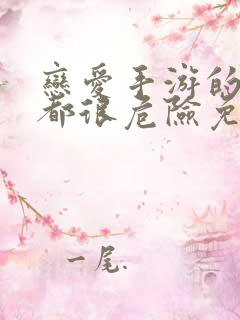 戀愛手游的
都很危險免
一尾.